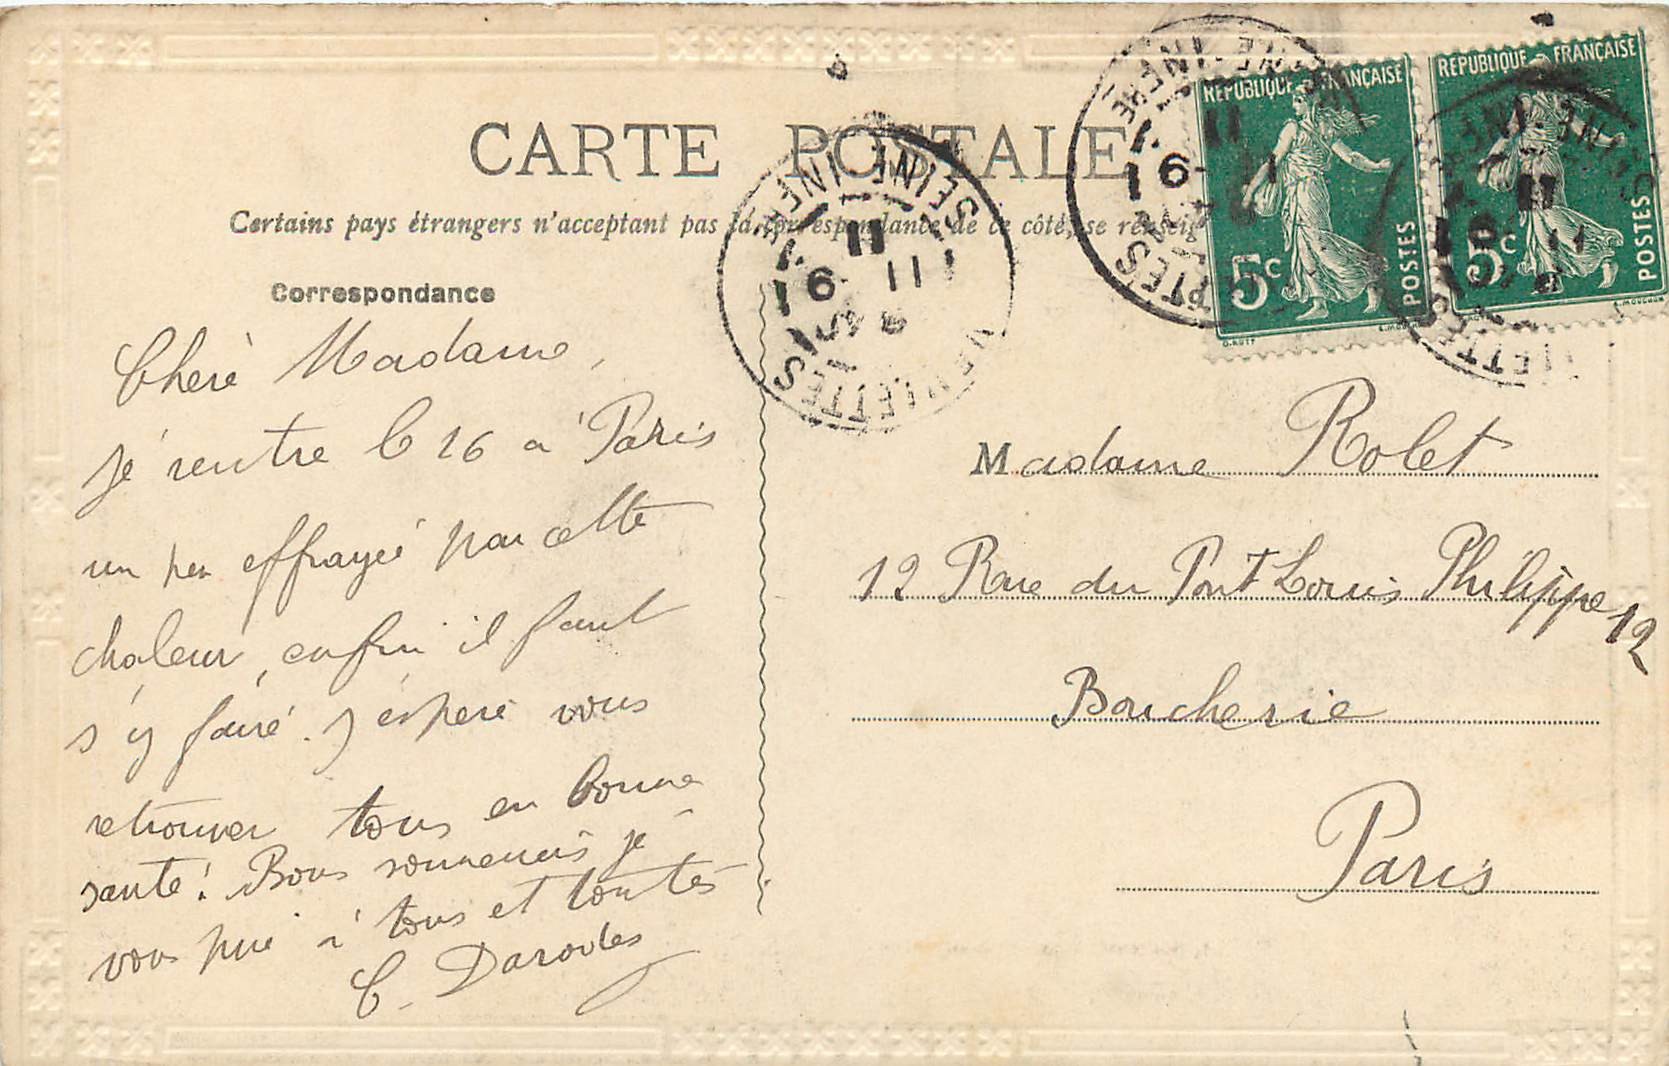 CARTE POSTALE
Certains pays étrangers n'acceptant pas la correspondance de ce côté, se renseig
Correspondance
Chère Madame,
je rentre le 16 à Paris
un peu effrayée par cette
chaleur, enfin il faut
s'y faire. J'éspère vous
retrouver tous en bonne
santé! Bons souvenirs je
vous prie à tous et toutes
C. Darodes
REPUBLIQUE FRANÇAISE
5c
POSTES
REPUBLIQUE FRANÇAISE
5c
POSTES
VEULETTES
SEINE INFRE
16 11
11
Madame Rolet
12 Rue du Pont Louis Philippe 12
Boucherie
Paris